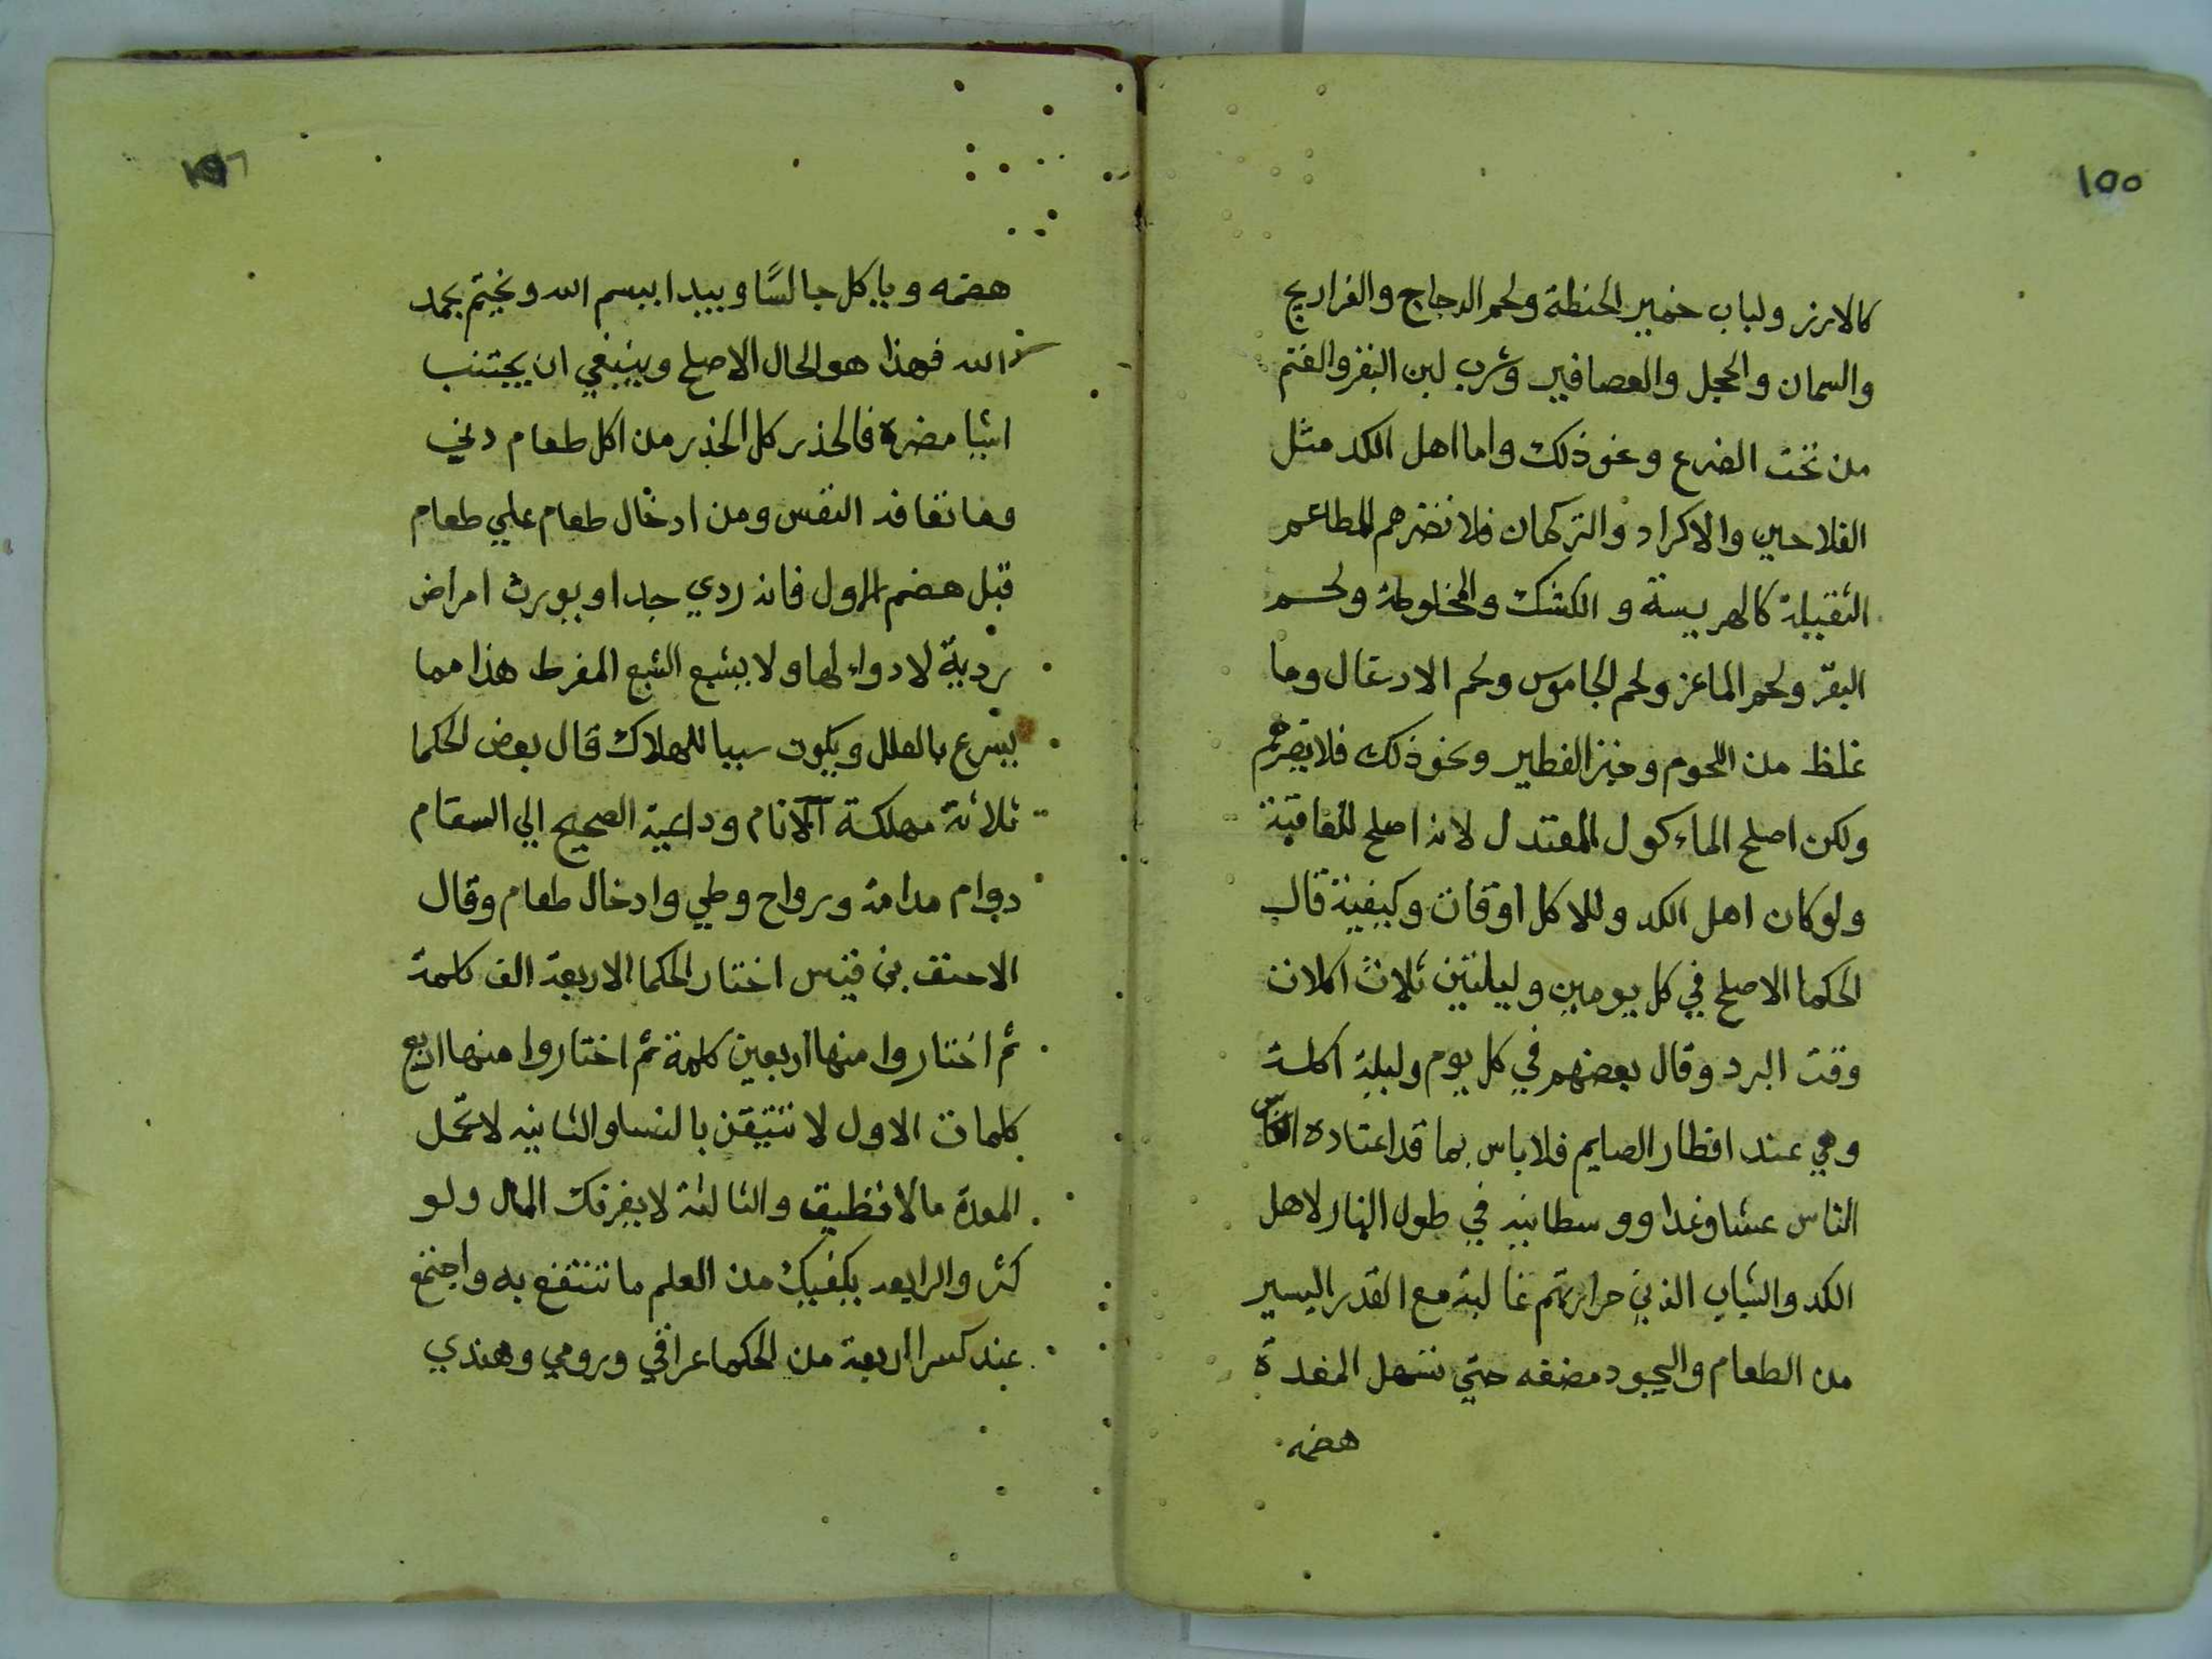 ١٥٥
كالارز ولباب خمير الحنطة ولحم الدجاج والفراريج
والسمان والحجل والعصافير وشرب لبن البقر والغنم
من تحت الضرع ونحو ذلك واما اهل الكد مثل
الفلاحين والاكراد والتركمان فلا تضرهم المطاعم
الثقيلة كالهريسة و الكشك والمخلوطة ولحم
البقر ولحم الماعز ولحم الجاموس ولحم الادغال وما
غلظ من اللحوم وخبز الفطير ونحو ذلك فلا يضرهم
ولكن اصلح الماءكول المعتدل لانه اصلح للعاقبة
ولو كان اهل الكد وللاكل اوقات وكيفية قال
الحكما الاصلح في كل يومين وليلتين ثلاث اكلات
وقت البرد وقال بعضهم في كل يوم وليلة اكلة
وهي عند افطار الصايم فلا باس بما قد اعتاده الناس
الناس عشا وغدا ووسطانيه في طول النهار لاهل
الكد والشباب الذين حرارتهم غالبة مع القدر اليسير
من الطعام واليجود مضغه حتي تسهل المعدة
هضمه
١٥٦
هضمه وياكل جالسًا ويبدا ببسم الله ويختم بحمد
الله فهذا هو الحال الاصلح وينبغي ان يجتنب
اشيا مضرة فالحذر كل الحذر من اكل طعام دني
وما تعافه النفس ومن ادخال طعام علي طعام
قبل هضم الاول فانه ردي جدا ويورث امراض
ردية لا دواء لها ولا يشبع الشبع المفرط هذا مما
يسرع بالعلل ويكون سببا للهلاك قال بعض الحكما
ثلاثة مهلكة الانام وداعية الصحيح الي السقام
دوام مدامة ورواح وطي وادخال طعام وقال
الاحنف بن قيس اختار الحكما الاربعة الف كلمة
ثم اختاروا منها اربعين كلمة ثم اختاروا منها اربع
كلمات الاول لا تتيقن بالنسا والثانيه لا تحمل
المعدة مالا تطيق والثالثة لا يغرنك المال ولو
كثر والرابعه يكفيك من العلم ما تنتفع به واجتمع
عند كسرا اربعة من الحكما عراقي ورومي وهندي